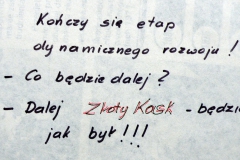 Kończy się etap
dynamicznego rozwoju!
- Co będzie dalej?
- Dalej Złoty Kask - będzie
jak był!!!